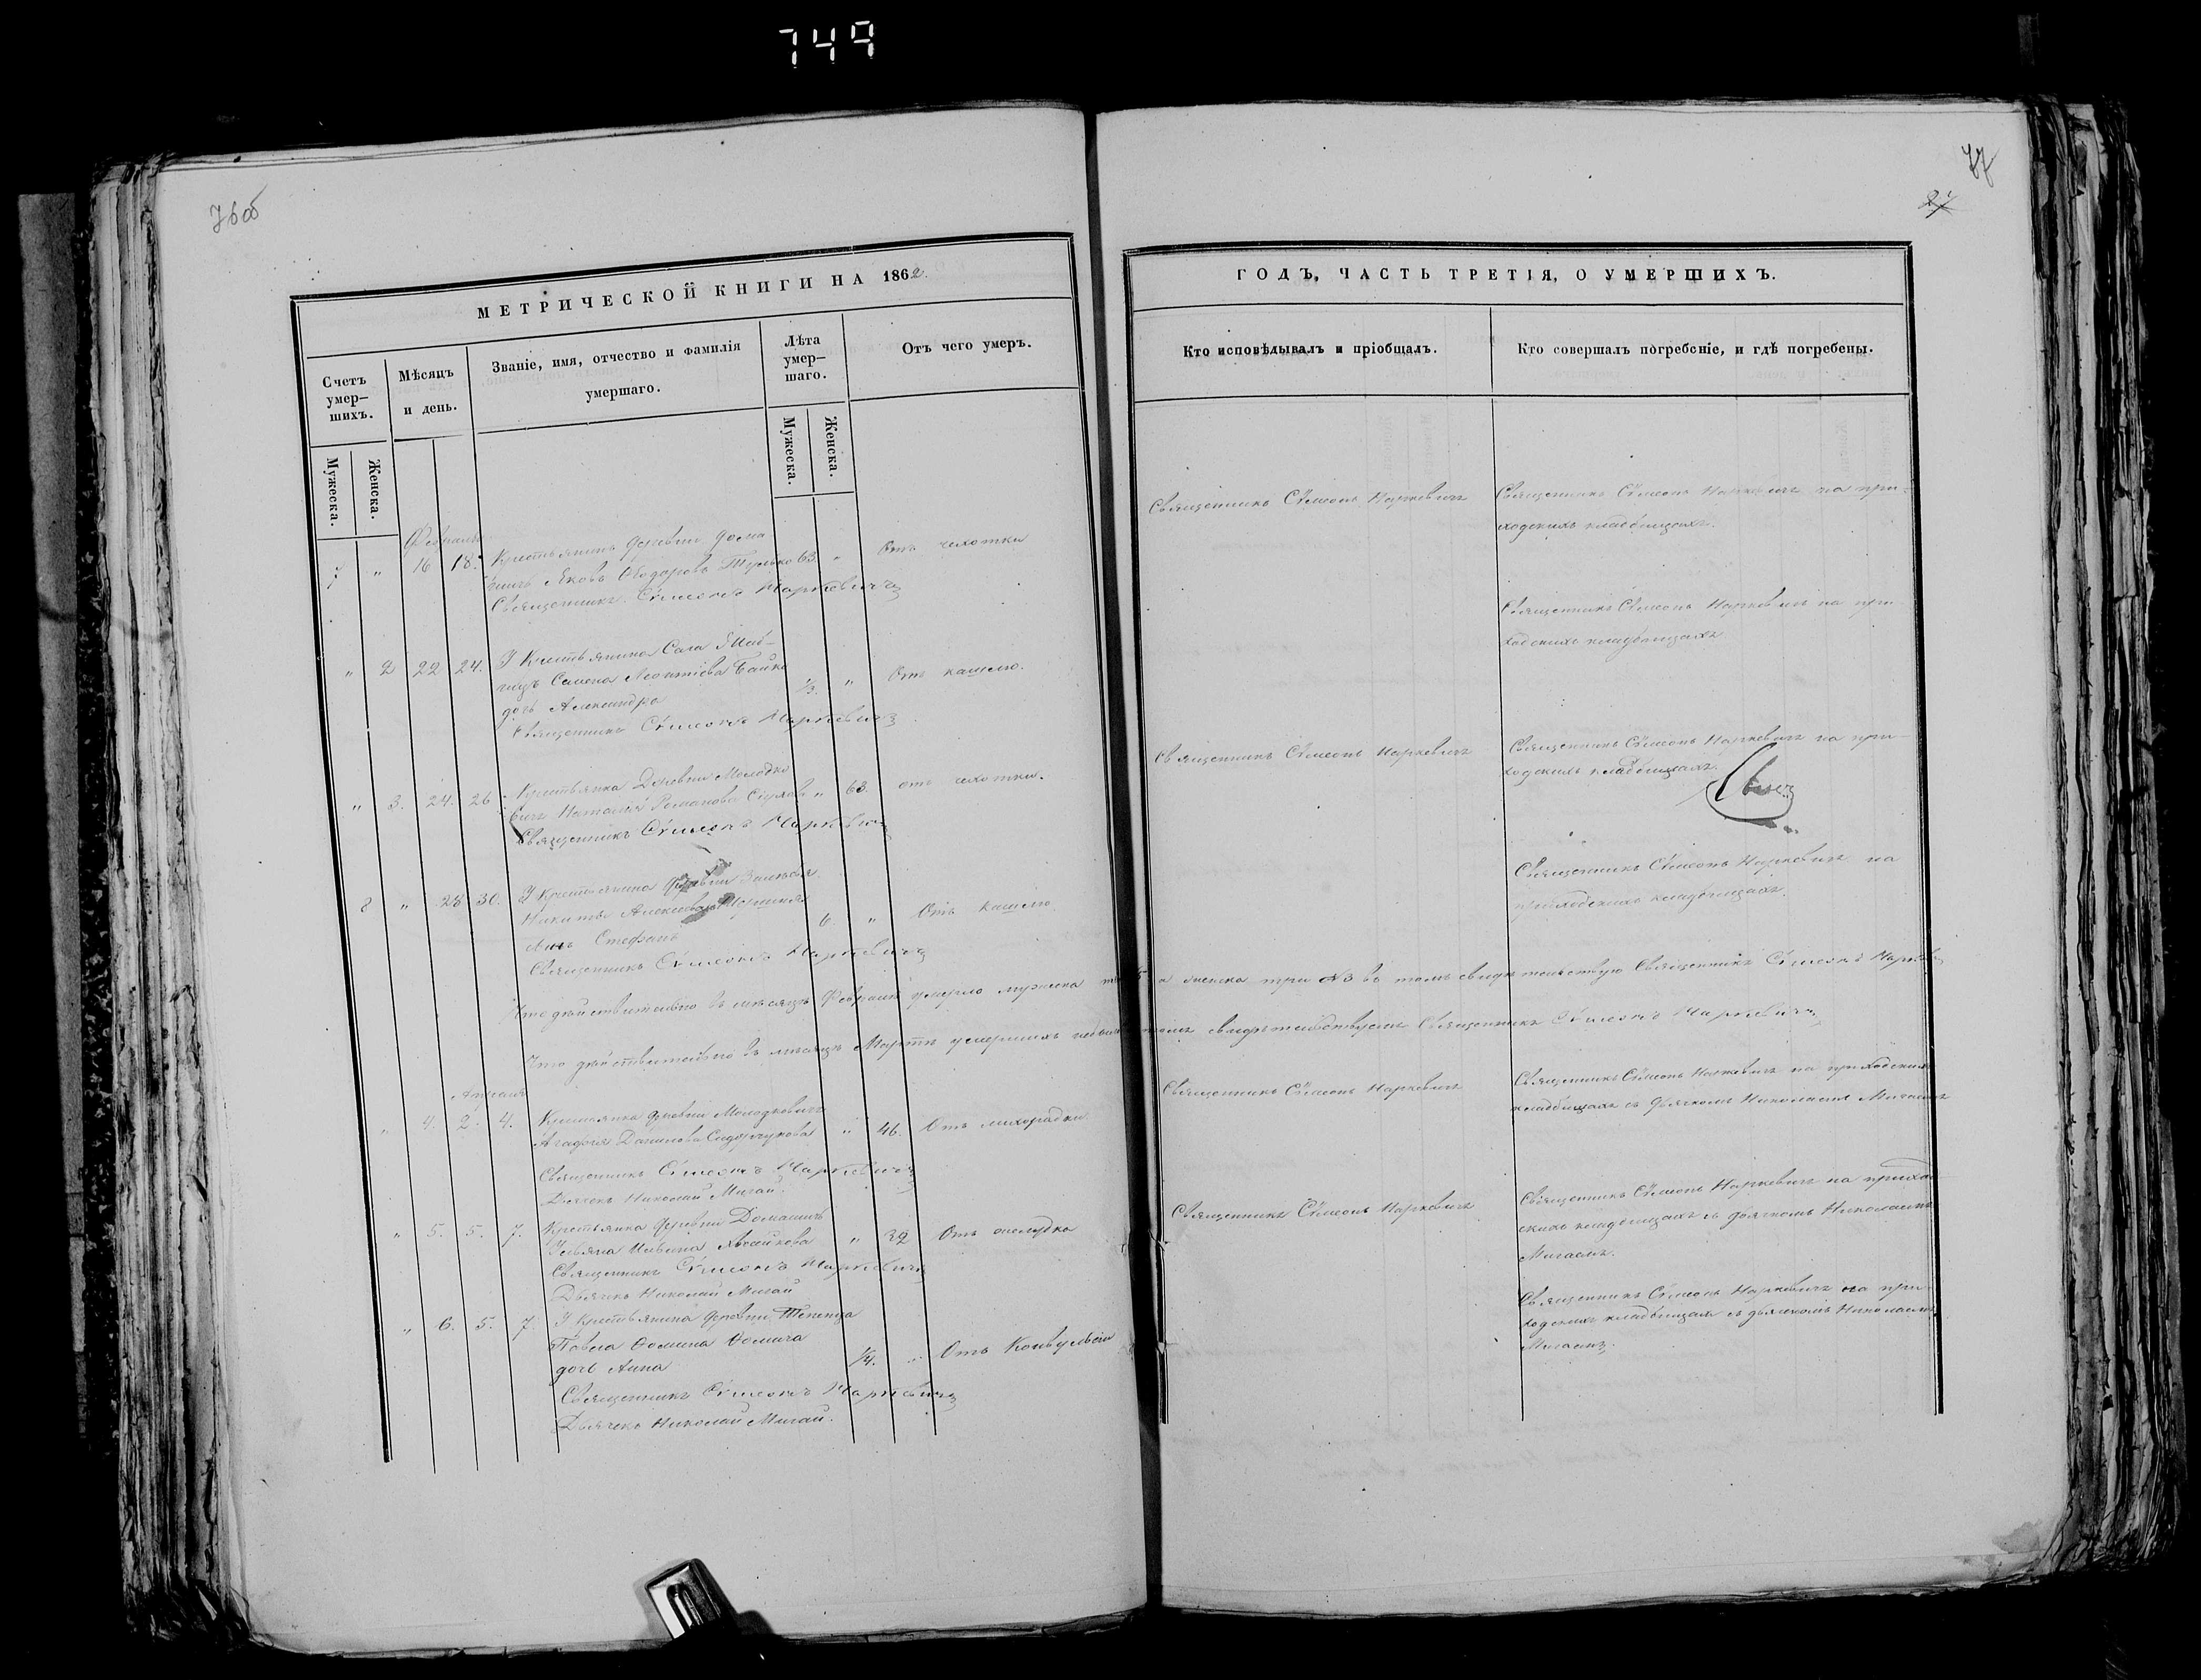 749
76об
77
МЕТРИЧЕСКОЙ КНИГИ НА 1862.
Счетъ умер-
шихъ.
Мѣсяцъ
и день.
Званіе, имя, отчество и фамилія
умершаго.
Лѣта
умер-
шаго.
Отъ чего умеръ.
Мужеска.
Женска.
Мужеска.
Женска.
Февраль
7 " 16 18. Крестьянинъ деревни Дома-
шичъ Яковъ Ѳеодоровъ 63. " Отъ чахотки
Священникъ Сѵмеонъ Наркевичъ
" 2 22 24. У Крестьянина Села
Семена Леонтіева
дочь Александра 1/3. " Отъ кашлю.
Священникъ Сѵмеонъ Наркевичъ
" 3. 24. 26 Крестьянка Деревни Молодко-
вичъ Наталія Романова " 63. отъ чахотки.
Священникъ Сѵмеонъ Наркевичъ
8 " 28 30. У Крестьянина деревни
Никиты Алексѣева
сынъ Стефанъ 6. " Отъ кашлю
Священникъ Сѵмеонъ Наркевичъ
Что дѣйствительно въ мѣсяцѣ Февралѣ умерло мужеска женска три №3 въ томъ свидѣтельствую Священникъ Сѵмеонъ Наркевичъ
Что дѣйствительно въ мѣсяцѣ Мартѣ умершихъ небыло томъ свидѣтельствуемъ Священникъ Сѵмеонъ Наркевичъ
Апрѣля
" 4. 2. 4. Крестьянка деревни Молодковичъ
Агафія Данилова " 46. Отъ лихорадки
Священникъ Сѵмеонъ Наркевичъ
Дьячекъ Николай Мигай.
" 5. 5. 7. Крестьянка деревни Домашичъ
Ульяна " 32 Отъ
Священникъ Сѵмеонъ Наркевичъ
Дьячекъ Николай Мигай
" 6. 5. 7. У Крестьянина деревни
Павла Ѳомина
дочь Анна 1/4. " Отъ Конвульсіи
Священникъ Сѵмеонъ Наркевичъ
Дьячекъ Николай Мигай.
ГОДЪ, ЧАСТЬ ТРЕТІЯ, О УМЕРШИХЪ.
Кто исповѣдывалъ и пріобщалъ.
Кто совершалъ погребеніе, и гдѣ погребены.
Священникъ Сѵмеонъ Наркевичъ
Священникъ Сѵмеонъ Наркевичъ на при-
ходскихъ кладбищахъ.
Священникъ Сѵмеонъ Наркевичъ на при-
ходскихъ кладбищахъ
Священникъ Сѵмеонъ Наркевичъ
Священникъ Сѵмеонъ Наркевичъ на при-
ходскихъ кладбищахъ.
Священникъ Сѵмеонъ Наркевичъ на
приходскихъ кладбищахъ.
Священникъ Сѵмеонъ Наркевичъ
Священникъ Сѵмеонъ Наркевичъ на приходскихъ
кладбищахъ съ дьячкомъ Николаемъ Мигаемъ
Священникъ Сѵмеонъ Наркевичъ
Священникъ Сѵмеонъ Наркевичъ на приход-
скихъ кладбищахъ съ дьячкомъ Николаемъ
Мигаемъ.
Священникъ Сѵмеонъ Наркевичъ на при-
ходскихъ кладбищахъ съ дьячкомъ Николаемъ
Мигаемъ.